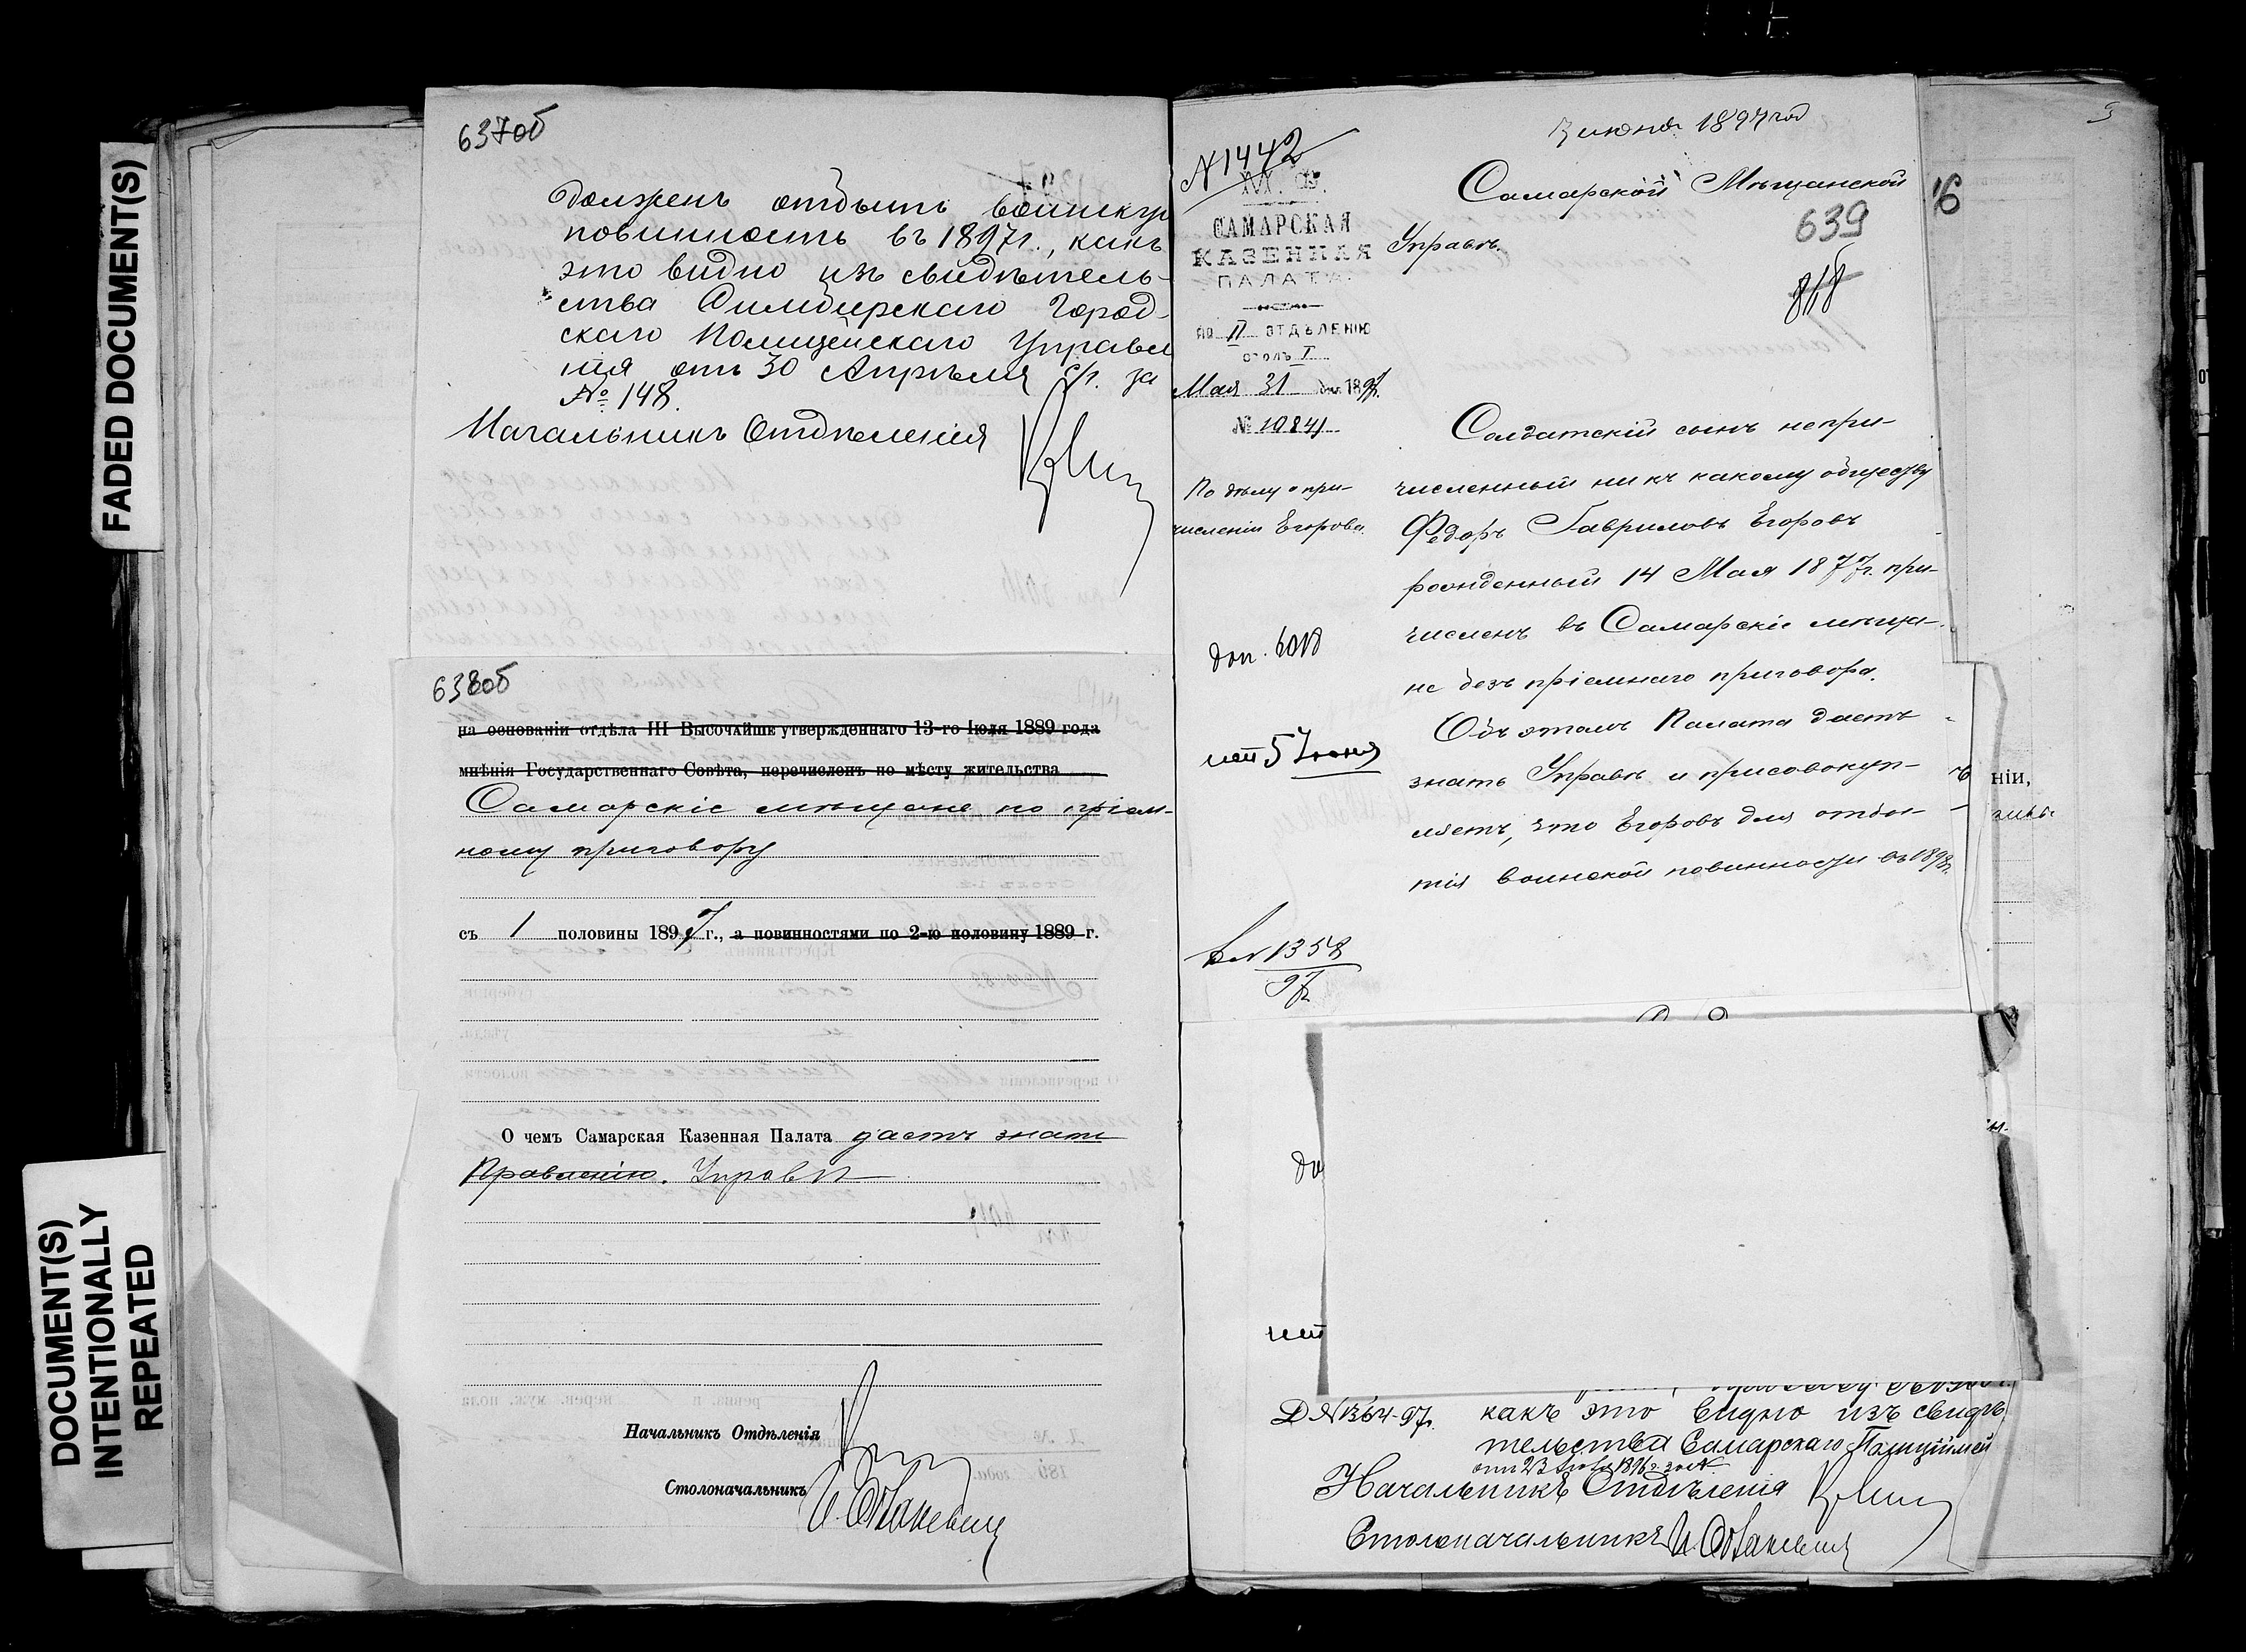 FADED DOCUMENT(S)
DOCUMENT(S)
INTENTIONALLY
REPEATED
637об
долженъ отбыть воинскую
повинность въ 1897г., какъ
это видно изъ свидѣтель-
ства Симбирскаго Город-
скаго Полицейскаго Управле
нія отъ 30 Апрѣля с/г. за
№ 148.
Начальникъ Отдѣленія
638об
на основаніи отдѣла III Высочайше утвержденнаго 13-го Іюля 1889 года
мнѣнія Государственнаго Совѣта, перечисленъ по мѣсту жительства
Самарскіе мѣщане по пріем-
ному приговору
съ 1 половины 1897 г., а повинностями по 2-ю половину 1889 г.
О чемъ Самарская Казенная Палата даетъ знать
Правленію. Управѣ
Начальникъ Отдѣленія
Столоначальникъ
3 июня 1897 год
N 1442
М. Ф.
САМАРСКАЯ
КАЗЕННАЯ
ПАЛАТА.
по II отдѣленію
столъ I
Мая 31 дня 1897г.
№ 10841
Самарской Мѣщанской
639
Управѣ.
818
По дѣлу о при-
численіи Егорова.
доп. 6018
чит 5 Іюня
Солдатскій сынъ непри-
численный ни къ какому обществу
Федоръ Гавриловъ Егоровъ
рожденный 14 Мая 1877г. при-
численъ въ Самарскіе мѣща-
не безъ пріемнаго приговора.
Объ этомъ Палата даетъ
знать Управѣ и присовокуп-
ляетъ, что Егоровъ для отбы-
тія воинской повинности въ 1898г.
N 1358
97г
ніи,
до
чит
Д N 1364-97г.
какъ это видно изъ свидѣ
тельства Самарскаго Полиціймей
Начальникъ Отдѣленія
Столоначальникъ